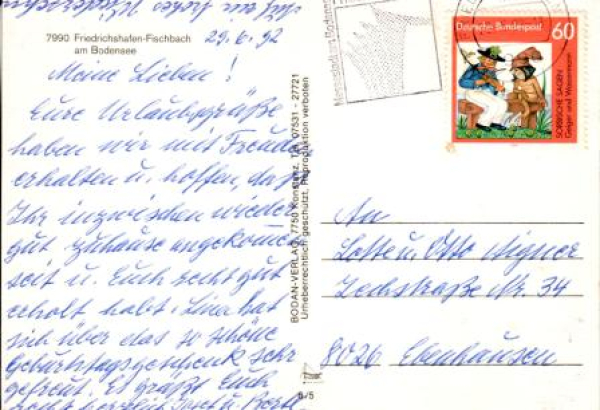 7990 Friedrichshafen-Fischbach
am Bodensee
29.6.92
Meine Lieben!
Eure Urlaubsgrüße
haben wir mit Freude
erhalten u. hoffen, daß
Ihr inzwischen wieder
gut zuhause angekommen
seit u. Euch recht gut
erholt habt. Lina hat
sich über das so schöne
Geburtstagsgeschenk sehr
gefreut. Es grüßt Euch
recht herzlich Josef u.
BODAN-VERLAG, 7750 Konstanz, Tel. 07531 - 27721
Urheberrechtlich geschützt, Reproduktion verboten
6/5
Deutsche Bundespost
60
SORBISCHE SAGEN
Geiger und Wassermann
An
Lotte u. Otto Aigner
Lechstraße Nr. 34
8026 Ebenhausen